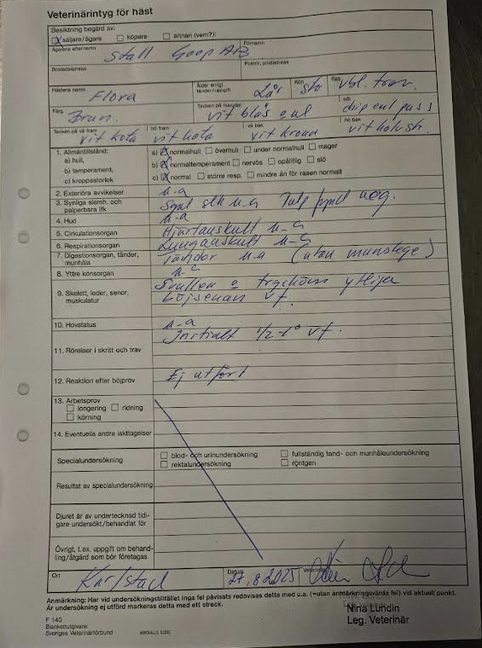 Veterinärintyg för häst
Besiktning begärd av:
säljare/ägare köpare annan (vem?):
Ägarens efternamn Förnamn
Stall Goop AB
Bostadsadress Postnr, postadress
Hästens namn Ålder enligt Kön Ras
Flora 2 år sto vbl. trav.
Färg Tecken på huvudet
Brun. vit bläs enl pass
Tecken på vä fram hö fram vä bak hö bak
vit kota vit kota vit krona
1. Allmäntillstånd:
a) hull, a) normalhull överhull under normalhull mager
b) temperament, b) normaltemperament nervös opålitlig slö
c) kroppsstorlek c) normal större resp. mindre än för rasen normalt
2. Exteriöra avvikelser u-a
3. Synliga slemh. och palperbara lfk Synl slh u-a
4. Hud u-a
5. Cirkulationsorgan Hjärtauskult u-a
6. Respirationsorgan Lungauskult u-a
7. Digestionsorgan, tänder, munhåla Tänder u-a (utan munstege)
8. Yttre könsorgan u-a
9. Skelett, leder, senor, muskulatur Svullen o trycköm ytliga
böjsenan vf.
10. Hovstatus u-a
11. Rörelser i skritt och trav Initialt 1/2-1° vf.
12. Reaktion efter böjprov Ej utfört
13. Arbetsprov
longering ridning
körning
14. Eventuella andra iakttagelser
Specialundersökning blod- och urinundersökning fullständig tand- och munhåleundersökning
rektalundersökning röntgen
Resultat av specialundersökning
Djuret är av undertecknad tidigare undersökt/behandlat för
Övrigt, t.ex. uppgift om behandling/åtgärd som bör företagas
Ort Datum Veterinär
Karlstad 27.8 2025
Anmärkning: Har vid undersökningstillfället inga fel påvisats redovisas detta med u.a. (=utan anmärkningsvärda fel) vid aktuell punkt.
Är undersökning ej utförd markeras detta med ett streck.
Nina Lundin
Leg. Veterinär
F 140
Blankettutgivare:
Sveriges Veterinärförbund